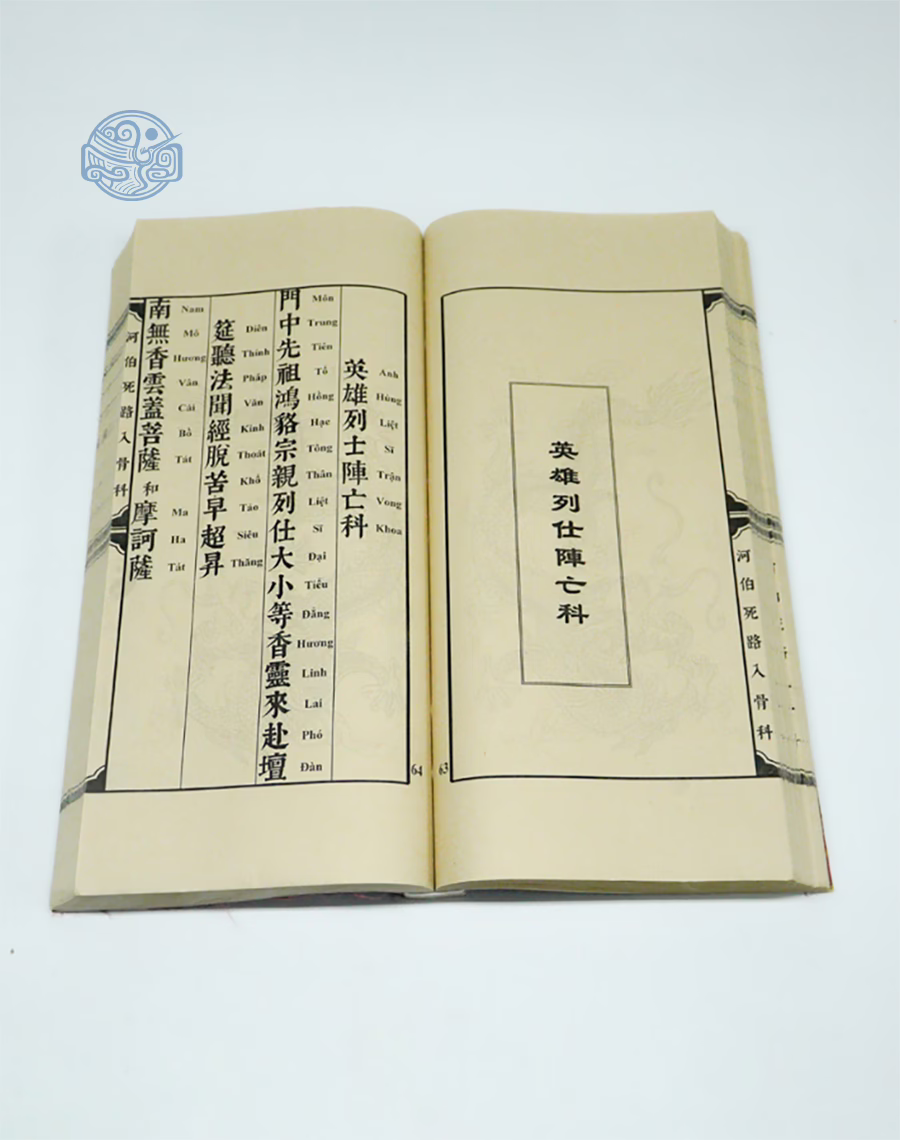 英雄列仕陣亡科
河伯死路入骨科
63
英雄列士陣亡科
Anh Hùng Liệt Sĩ Trận Vong Khoa
門中先祖鴻貉宗親列仕大小等香靈來赴壇
Môn Trung Tiên Tổ Hồng Hạc Tông Thân Liệt Sĩ Đại Tiểu Đẳng Hương Linh Lai Phó Đàn
筵聽法聞經脫苦早超昇
Diên Thính Pháp Văn Kinh Thoát Khổ Tảo Siêu Thăng
南無香雲蓋菩薩和摩訶薩
Nam Mô Hương Vân Cái Bồ Tát Ma Ha Tát
河伯死路入骨科
64